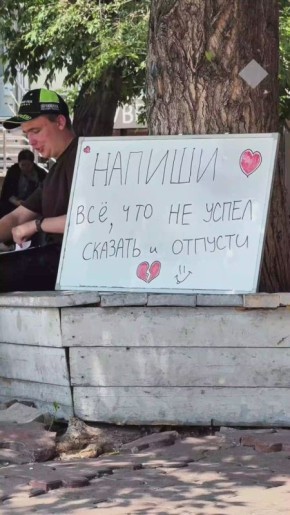 НАПИШИ
ВСЁ, ЧТО НЕ УСПЕЛ
СКАЗАТЬ и ОТПУСТИ